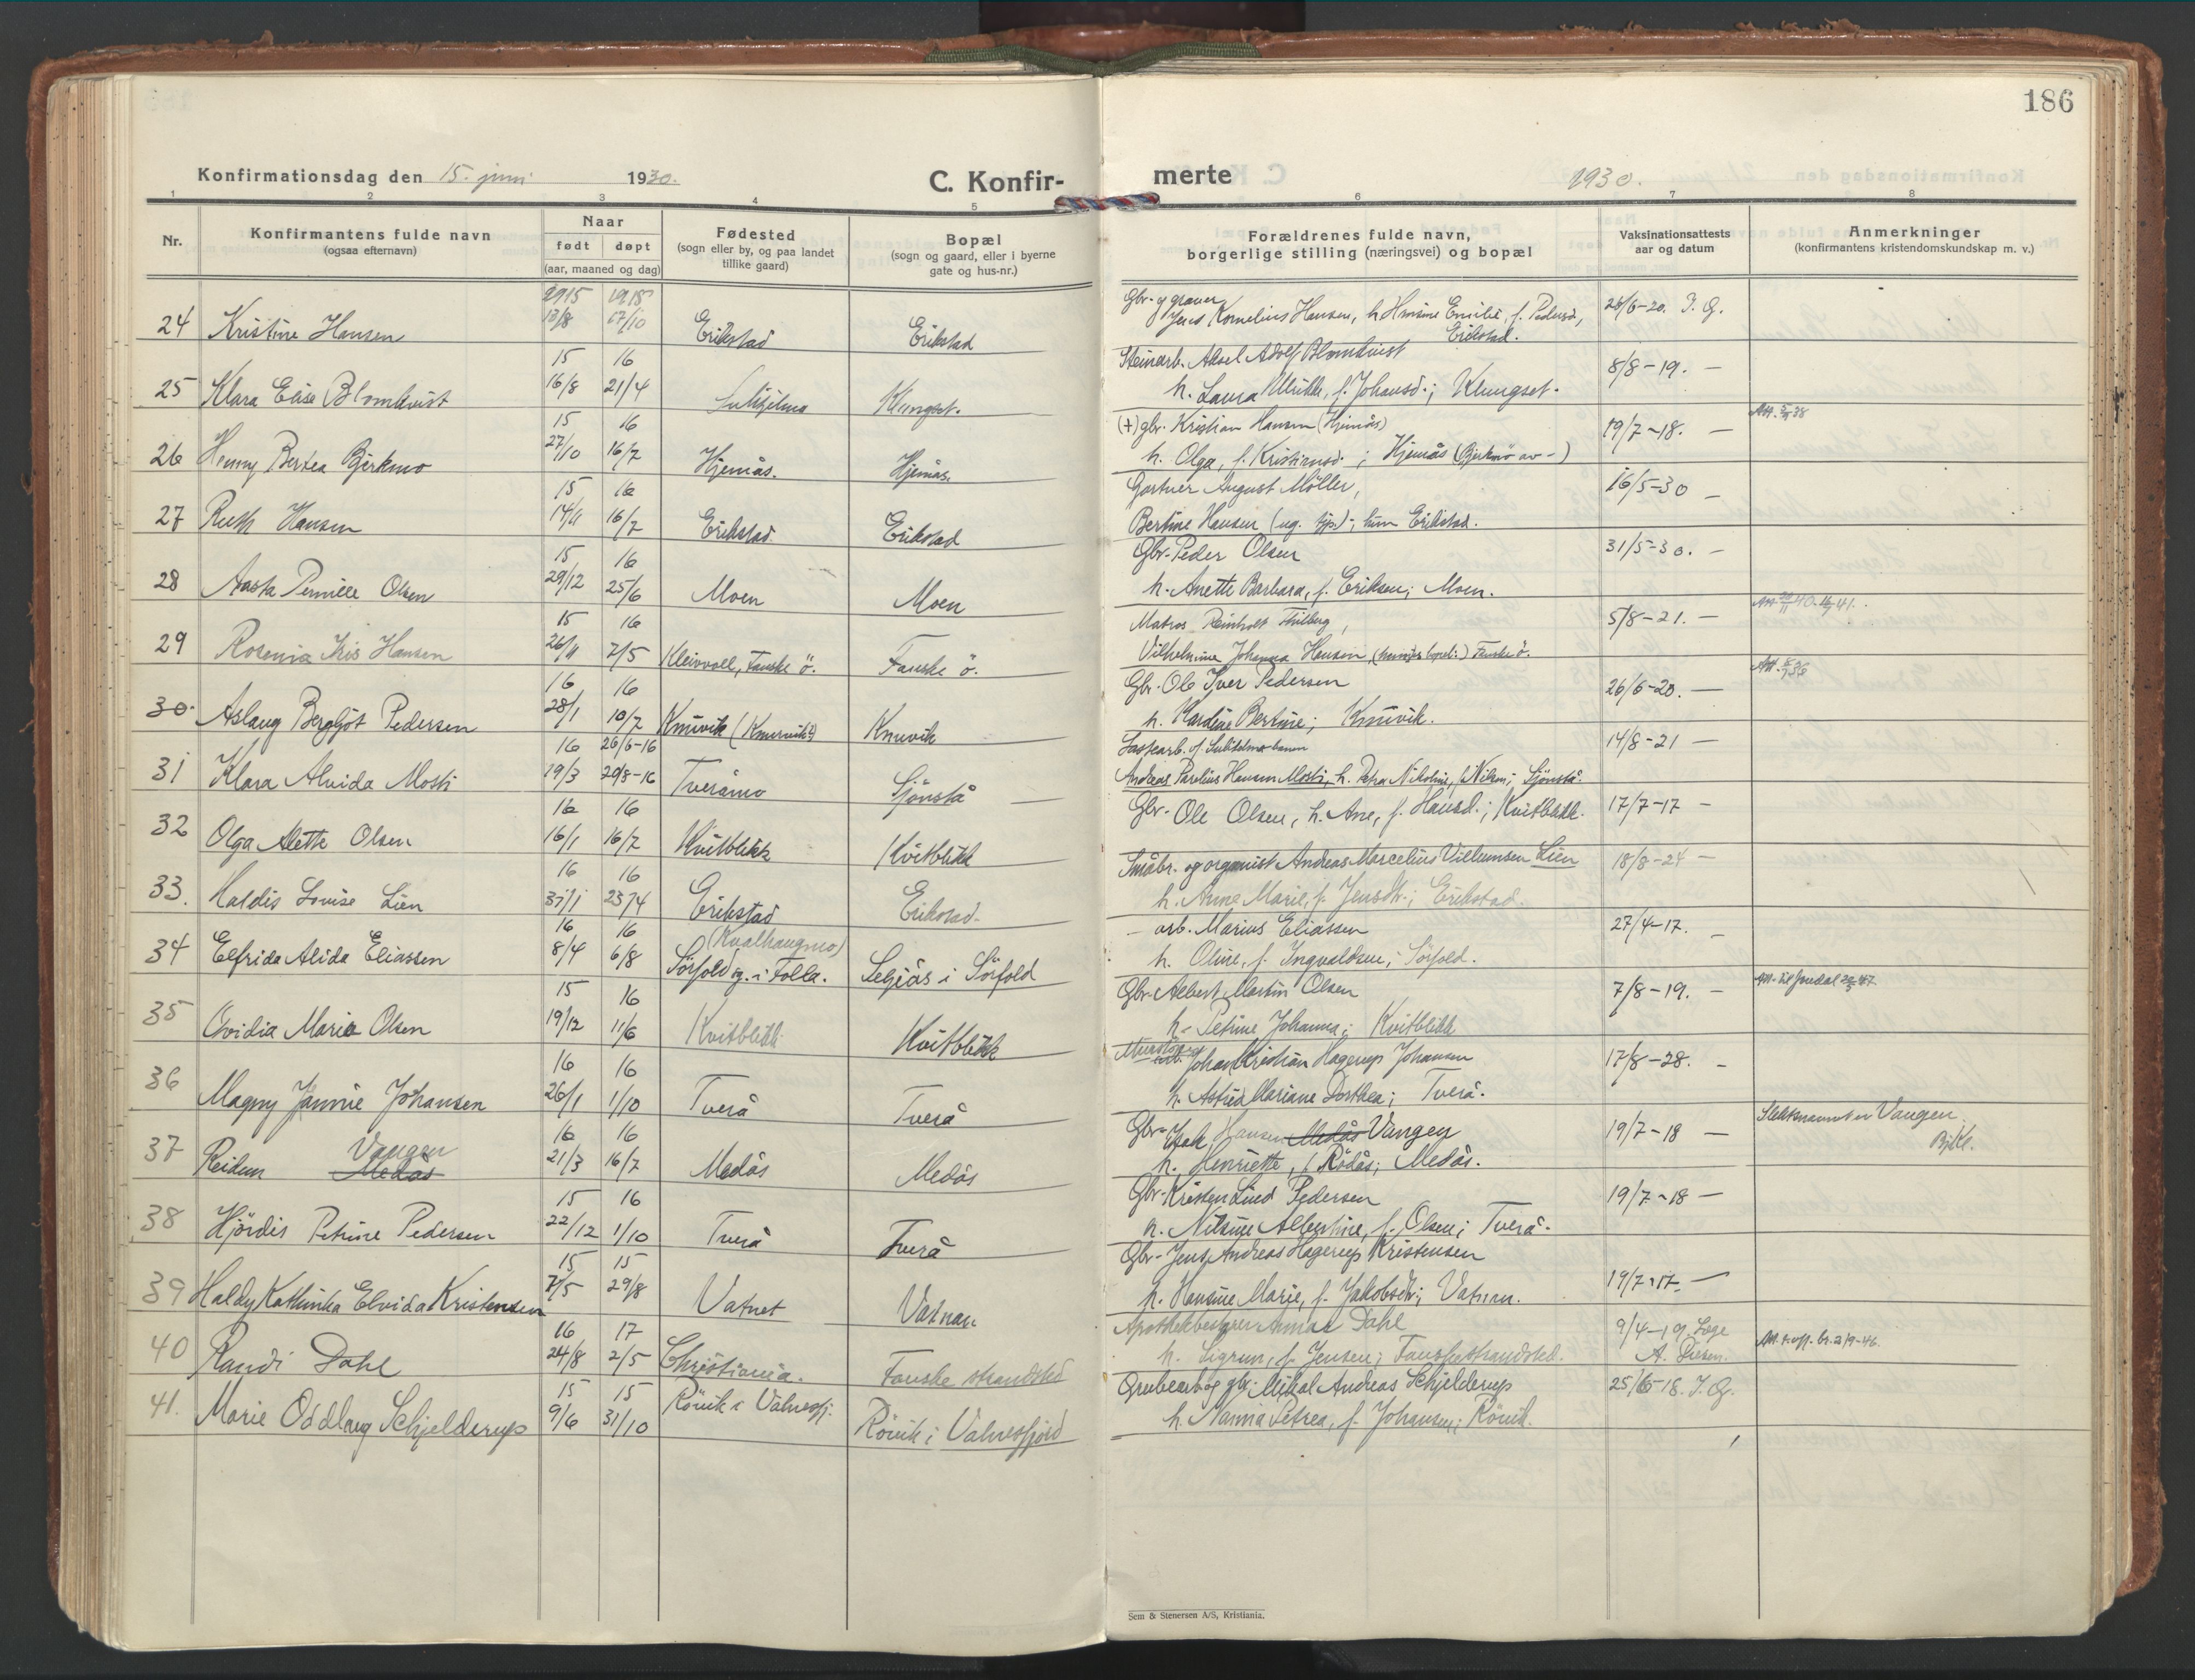 186
Konfirmationsdag den 15. juni 1930.
C. Konfir-
merte
1930.
1 2 3 4 5 6 7 8
Nr.
Konfirmantens fulde navn
(ogsaa efternavn)
Naar
født døpt
(aar, maaned og dag)
Fødested
(sogn eller by, og paa landet
tillike gaard)
Bopæl
(sogn og gaard, eller i byerne
gate og hus-nr.)
Forældrenes fulde navn,
borgerlige stilling (næringsvei) og bopæl
Vaksinationsattests
aar og datum
Anmerkninger
(konfirmantens kristendomskundskap m. v.)
1915 1915
24 Kristine Hansen 13/8 17/10 Erikstad Erikstad
Gbr. og graver
Jens Kornelius Hansen, h. Hansine Emilie, f. Pedersd., 26/6-20. J. G.
Erikstad.
15 16
25 Klara Elise Blomkvist 16/8 21/4 Sulitjelma Klungset.
Steinarb. Aksel Adolf Blomkvist 8/8-19. -
h. Laura Ulrikke, f. Johansd.; Klungset.
15 16
26 Henny Bertea Bjerkmo 27/10 16/7 Hjemås. Hjemås.
(+) gbr. Kristian Hansen (Hjemås) 19/7-18. -
h. Olga, f. Kristiansd.; Hjemås (Bjerkmo av -)
15 16
27 Ruth Hansen 14/11 16/7 Erikstad Erikstad
Gartner August Möller, 16/5-30 -
Bertine Hansen (ug. tjp.); hun Erikstad.
15 16
28 Aasta Pernille Olsen 29/12 25/6 Moen Moen
Gbr. Peder Olsen 31/5-30. -
h. Anette Barbara, f. Eriksen; Moen.
15 16
29 Rosenia Iris Hansen 26/11 7/5 Kleivvoll, Fauske ö. Fauske ö.
Matros Reinholt Thilberg, 5/8-21. -
Vilhelmine Johanna Hansen, Fauske ö.
16 16
30. Aslaug Bergljot Pedersen 28/1 10/7 Knuvik Knuvik
Gbr. Ole Iver Pedersen 26/6-20. -
h. Hardine Bertine; Knuvik.
16 26/6-16
31 Klara Alvida Mosti 19/3 20/8-16 Tveråmo Sjönstå
Lastearb. v/ Sulitelma-banen 14/8-21 -
Andreas Parelius Hansen Mosti, h. Petra Nikoline, f. Nilsen; Sjönstå.
16 16
32 Olga Alette Olsen 16/1 16/7 Kvitblikk Kvitblikk
Gbr. Ole Olsen, h. Ane, f. Hansd.; Kvitblikk. 17/7-17 -
16 16
33. Haldis Lovise Lien 31/1 23/4 Erikstad Erikstad.
Småbr. og organist Andreas Marcelius Villumsen Lien 18/8-24 -
h. Anne Marie, f. Jensdtr.; Erikstad.
16 16
34 Elfrida Alida Eliassen 8/4 6/8 (Kvalhaugmo)
Sörfold sg. i Folla. Seljås i Sörfold
- arb. Marius Eliassen 27/4-17. -
h. Oline, f. Ingvaldsen; Sörfold.
15 16
35 Ovidia Marie Olsen 19/12 11/6 Kvitblikk Kvitblikk
Gbr. Albert Martin Olsen 7/8-19. -
h. Petrine Johanna; Kvitblikk
16 16
36 Magny Jannie Johansen 26/1 1/10 Tverå Tverå
Johan Kristian Hagerup Johansen 17/8-28. -
h. Astrid Mariane Dorthea; Tverå.
16 16
37 Reidun Medås Vangen 21/3 16/7 Medås Medås
Gbr. Hansen Medås Vangen 19/7-18 - Slektsnavnet er Vangen
h. Henriette, f. Rödås; Medås.
15 16
38 Hjördis Petrine Pedersen 22/12 1/10 Tverå Tverå
Gbr. Kristen Lind Pedersen 19/7-18 -
h. Nilsine Albertine, f. Olsen; Tverå.
15 15
39 Haldy Kathinka Elvida Kristensen 7/5 29/8 Vatnet Vatnan
Gbr. Jens Andreas Hagerup Kristensen 19/7-17 -
h. Hansine Marie, f. Jakobsdtr; Vatnan.
16 17
40 Randi Dahl 24/8 2/5 Christiania. Fauske strandsted
Dahl 9/4-19. Læge
h. Sigrun, f. Jensen; Fauske strandsted.
15 15
41. Marie Oddlaug Schjelderup 9/6 31/10 Rönvik i Valnesfj. Rönvik i Valnesfjord
Grubearb. og gbr. Mikal Andreas Schjelderup 25/6-18. J. G.
h. Nanna Petrea, f. Johansen; Rönvik.
Sem & Stenersen A/S, Kristiania.